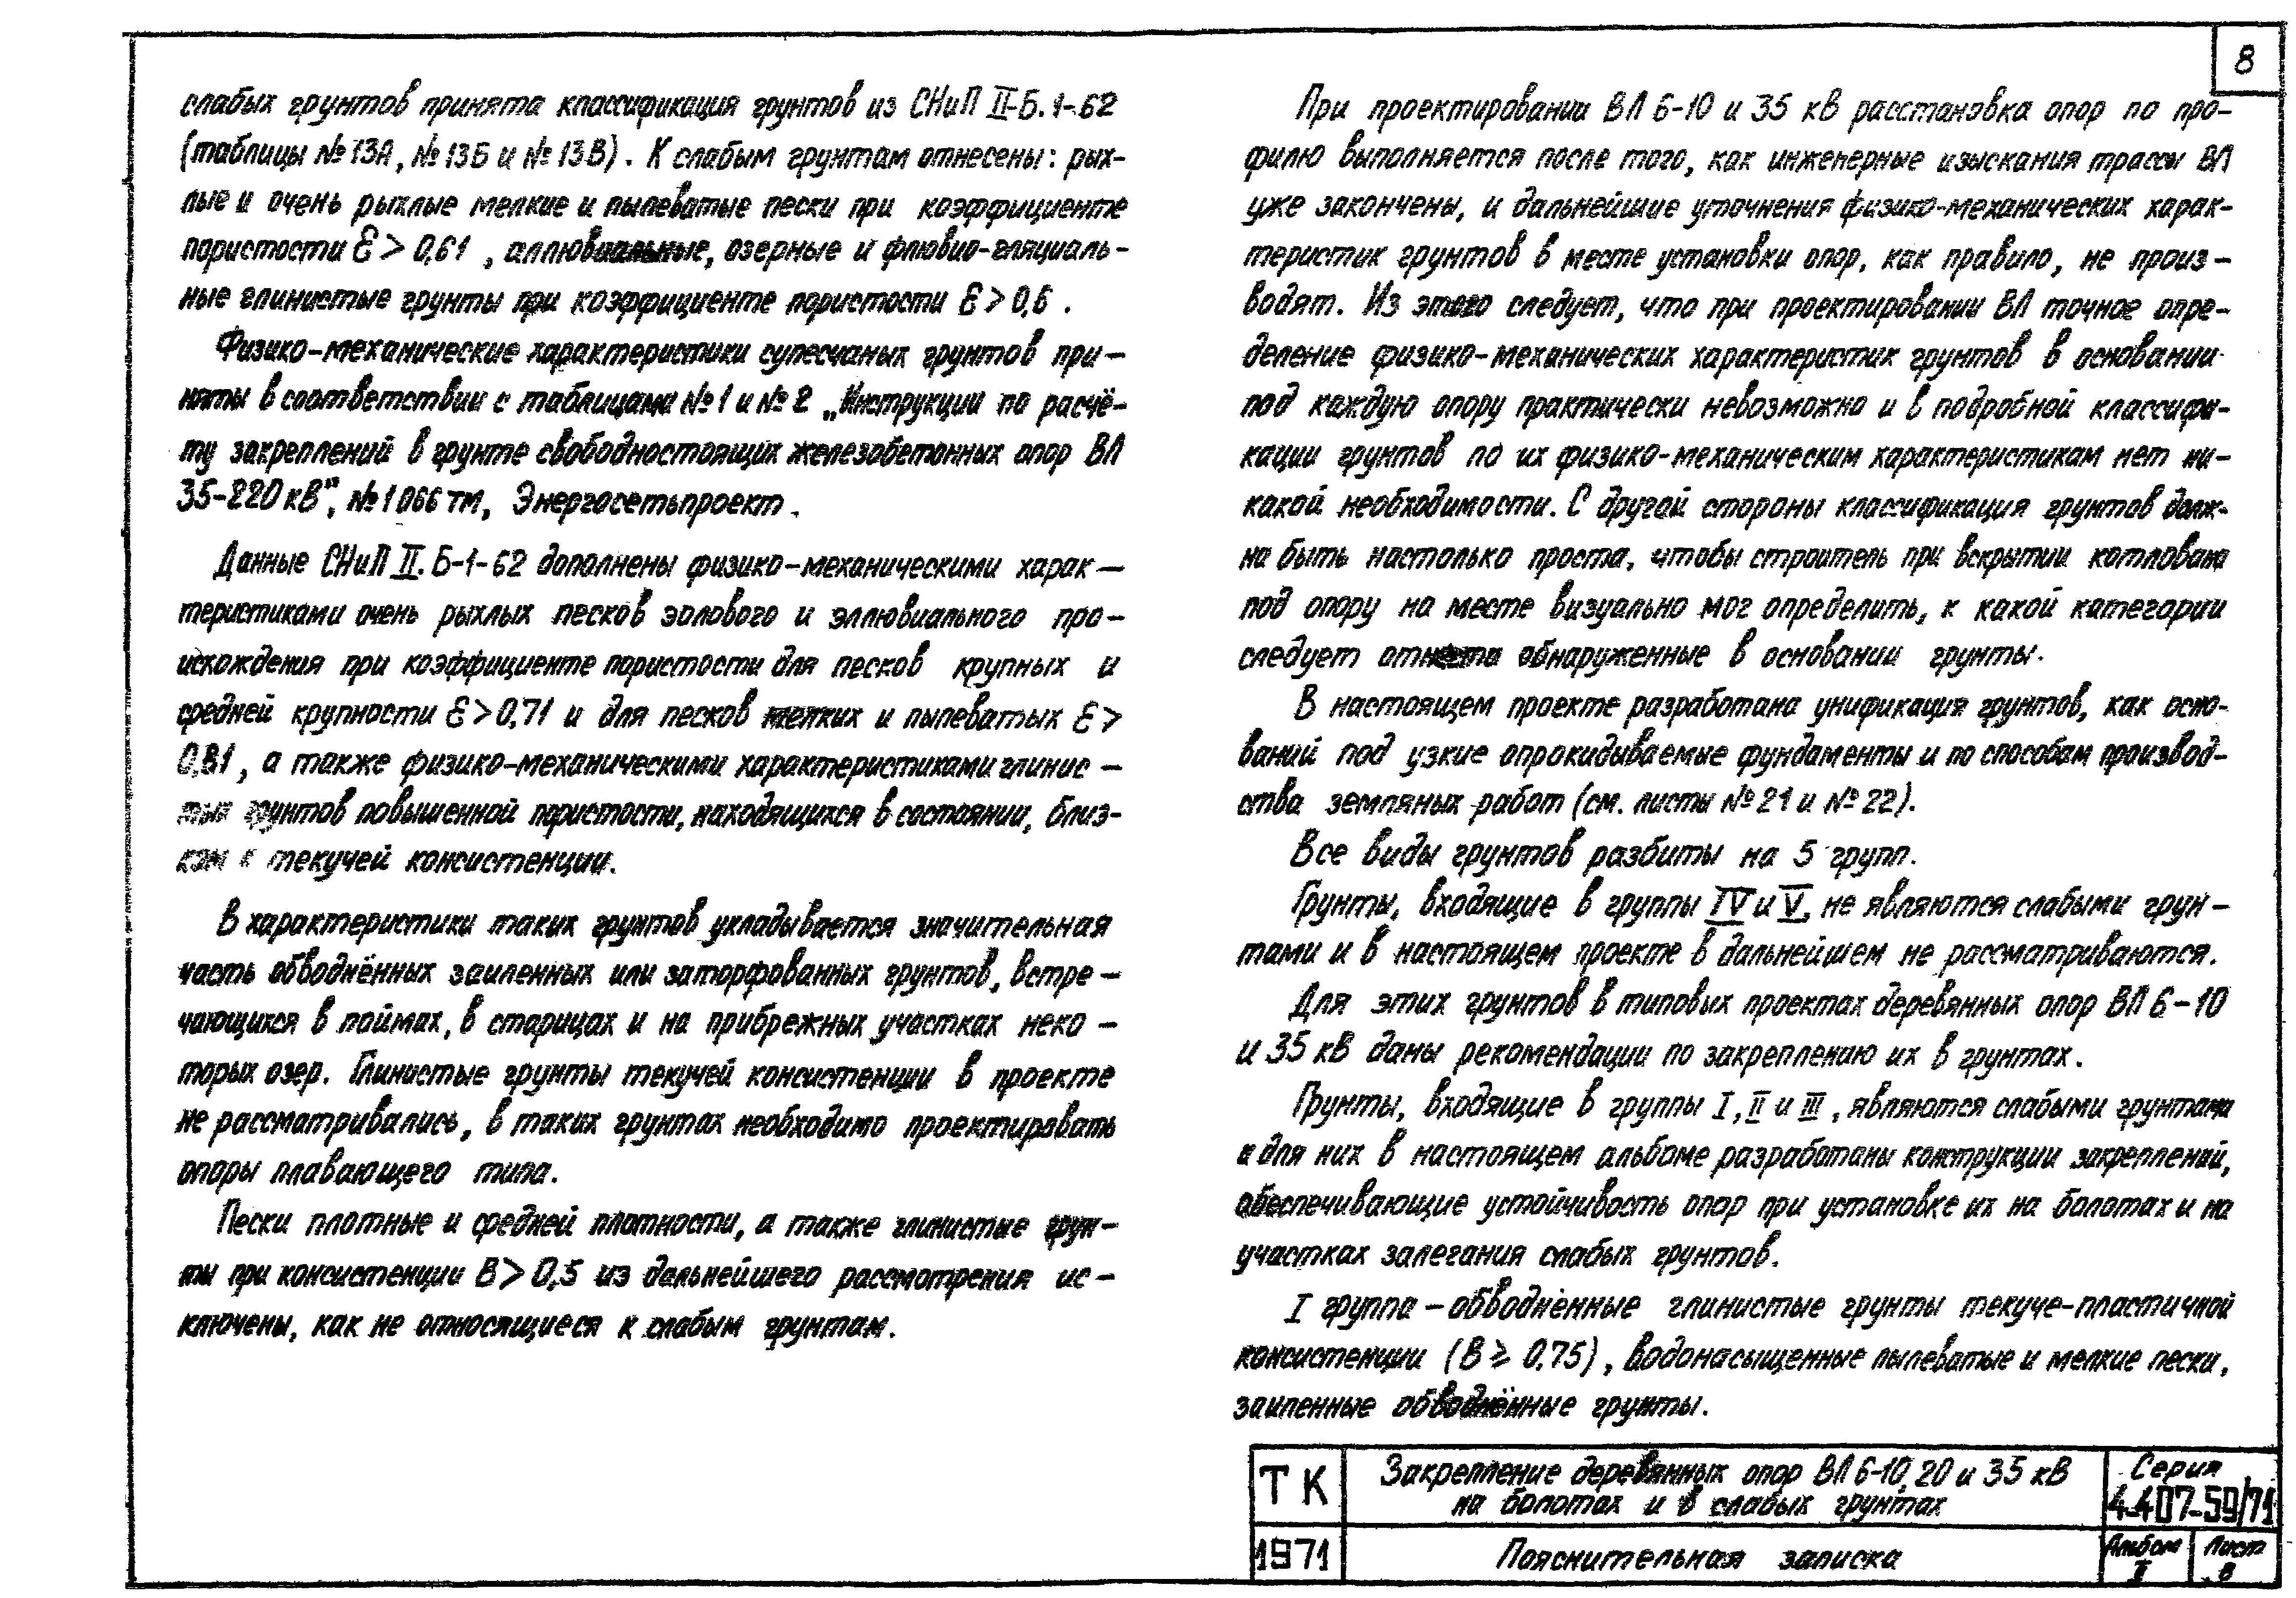 слабых грунтов принята классификация грунтов из СНиП II-Б.1-62
(таблицы №13А, №13Б и №13В). К слабым грунтам отнесены: рых-
лые и очень рыхлые мелкие и пылеватые пески при коэффициенте
пористости ε > 0,61, аллювиальные, озерные и флювио-гляциаль-
ные глинистые грунты при коэффициенте пористости ε > 0,6.
Физико-механические характеристики супесчаных грунтов при-
няты в соответствии с таблицами №1 и №2 „Инструкции по расчё-
ту закреплений в грунте свободностоящих железобетонных опор ВЛ
35-220 кВ", №1066 тм, Энергосетьпроект.
Данные СНиП II.Б-1-62 дополнены физико-механическими харак-
теристиками очень рыхлых песков эолового и эллювиального про-
исхождения при коэффициенте пористости для песков крупных и
средней крупности ε > 0,71 и для песков мелких и пылеватых ε >
0,81, а также физико-механическими характеристиками глинис-
тых грунтов повышенной пористости, находящихся в состоянии, близ-
ком к текучей консистенции.
В характеристики таких грунтов укладывается значительная
часть обводнённых заиленных или заторфованных грунтов, встре-
чающихся в поймах, в старицах и на прибрежных участках неко-
торых озер. Глинистые грунты текучей консистенции в проекте
не рассматривались, в таких грунтах необходимо проектировать
опоры плавающего типа.
Пески плотные и средней плотности, а также глинистые грун-
ты при консистенции В > 0,5 из дальнейшего рассмотрения ис-
ключены, как не относящиеся к слабым грунтам.
8
При проектировании ВЛ 6-10 и 35 кВ расстановка опор по про-
филю выполняется после того, как инженерные изыскания трассы ВЛ
уже закончены, и дальнейшие уточнения физико-механических харак-
теристик грунтов в месте установки опор, как правило, не произ-
водят. Из этого следует, что при проектировании ВЛ точное опре-
деление физико-механических характеристик грунтов в основании
под каждую опору практически невозможно и в подробной классифи-
кации грунтов по их физико-механическим характеристикам нет ни-
какой необходимости. С другой стороны классификация грунтов долж-
на быть настолько проста, чтобы строитель при вскрытии котлована
под опору на месте визуально мог определить, к какой категории
следует отнести обнаруженные в основании грунты.
В настоящем проекте разработана унификация грунтов, как осно-
ваний под узкие опрокидываемые фундаменты и по способам производ-
ства земляных работ (см. листы №21 и №22).
Все виды грунтов разбиты на 5 групп.
Грунты, входящие в группы IV и V, не являются слабыми грун-
тами и в настоящем проекте в дальнейшем не рассматриваются.
Для этих грунтов в типовых проектах деревянных опор ВЛ 6-10
и 35 кВ даны рекомендации по закреплению их в грунтах.
Грунты, входящие в группы I, II и III, являются слабыми грунтами
и для них в настоящем альбоме разработаны конструкции закреплений,
обеспечивающие устойчивость опор при установке их на болотах и на
участках залегания слабых грунтов.
I группа - обводненные глинистые грунты текуче-пластичной
консистенции (В ≥ 0,75), водонасыщенные пылеватые и мелкие пески,
заиленные обводнённые грунты.
ТК
Закрепление деревянных опор ВЛ 6-10, 20 и 35 кВ
на болотах и в слабых грунтах
Серия
4-407-59/71
1971
Пояснительная записка
Альбом
II
Лист
8